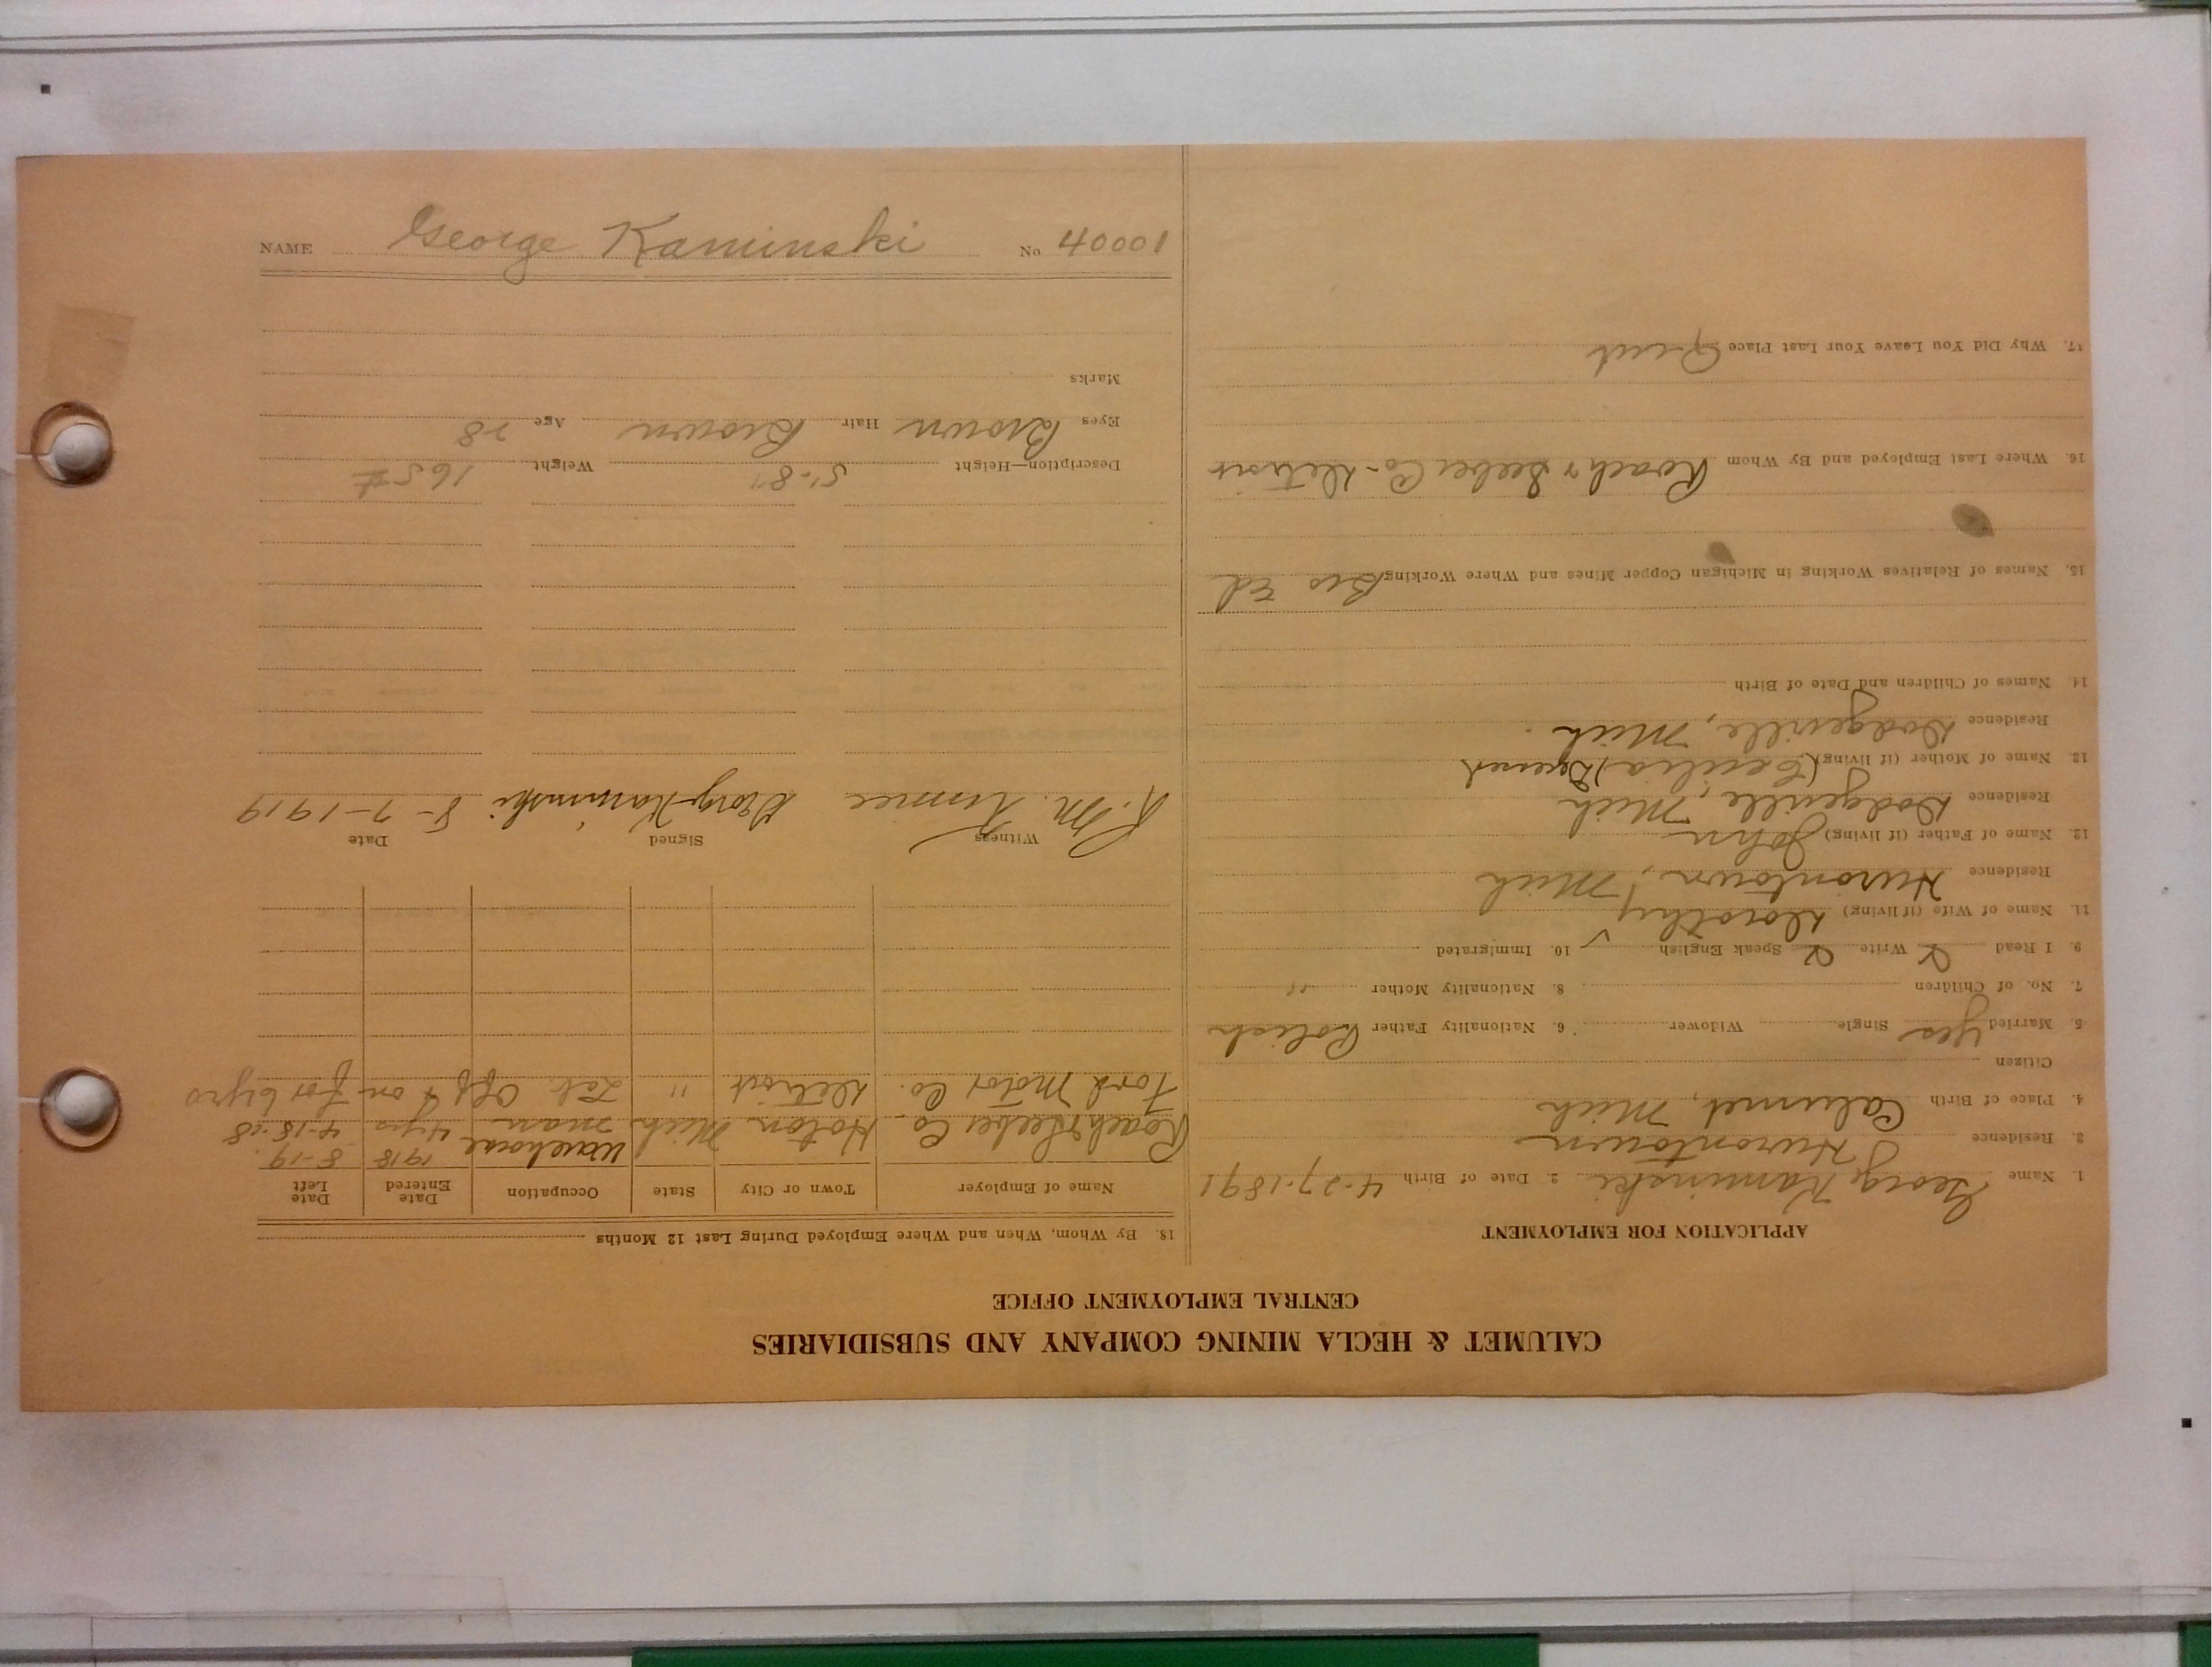 CALUMET & HECLA MINING COMPANY AND SUBSIDIARIES
CENTRAL EMPLOYMENT OFFICE
APPLICATION FOR EMPLOYMENT
1. Name George Kaminski 2. Date of Birth 4-27-1891
3. Residence Hurontown
4. Place of Birth Calumet, Mich
Citizen
5. Married Yes Single Widower 6. Nationality Father Polish
7. No. of Children 8. Nationality Mother "
9. I Read Write Speak English 10. Immigrated
11. Name of Wife (if living) Dorothy
Residence Hurontown, Mich
12. Name of Father (if living) John
Residence Dodgeville, Mich
13. Name of Mother (if living) (Cecilia) Deceased
Residence Dodgeville, Mich
14. Names of Children and Date of Birth
15. Names of Relatives Working in Michigan Copper Mines and Where Working Bro Ed
16. Where Last Employed and By Whom Roach & Seeber Co - Detroit
17. Why Did You Leave Your Last Place Quit
18. By Whom, When and Where Employed During Last 12 Months
Name of Employer Town or City State Occupation Date Entered Date Left
Roach & Seeber Co. Hoton Mich Warehouse man 1918 4 yrs 8-19 4-18-18
Ford Motor Co. Detroit " Lab. Off & on for 6 yrs
Witness Signed Date
R. M. George Kaminski 8-7-1919
Description—Height 5'-8" Weight 165 #
Eyes Brown Hair Brown Age 28
Marks
NAME George Kaminski No. 40001